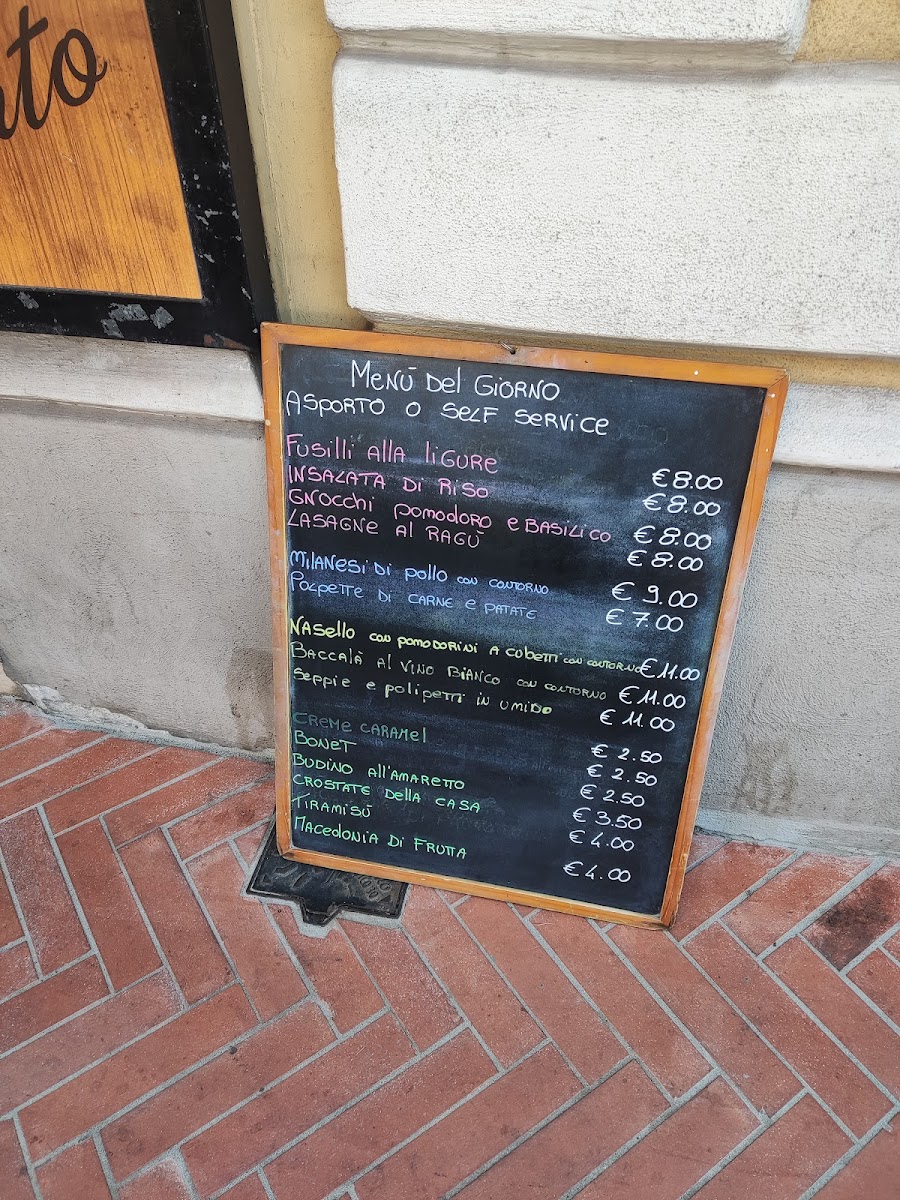 to
Menù Del Giorno
Asporto o Self Service
Fusilli alla ligure € 8.00
Insalata di Riso € 8.00
Gnocchi pomodoro e Basilico € 8.00
Lasagne al Ragù € 8.00
Milanesi di pollo con contorno € 9.00
Polpette di carne e patate € 7.00
Nasello con pomodorini a cubetti con contorno € 11.00
Baccalà al vino Bianco con contorno € 11.00
Seppie e polipetti in umido € 11.00
Creme caramel € 2.50
Bonet € 2.50
Budino all'amaretto € 2.50
Crostate della casa € 3.50
Tiramisù € 4.00
Macedonia di Frutta € 4.00